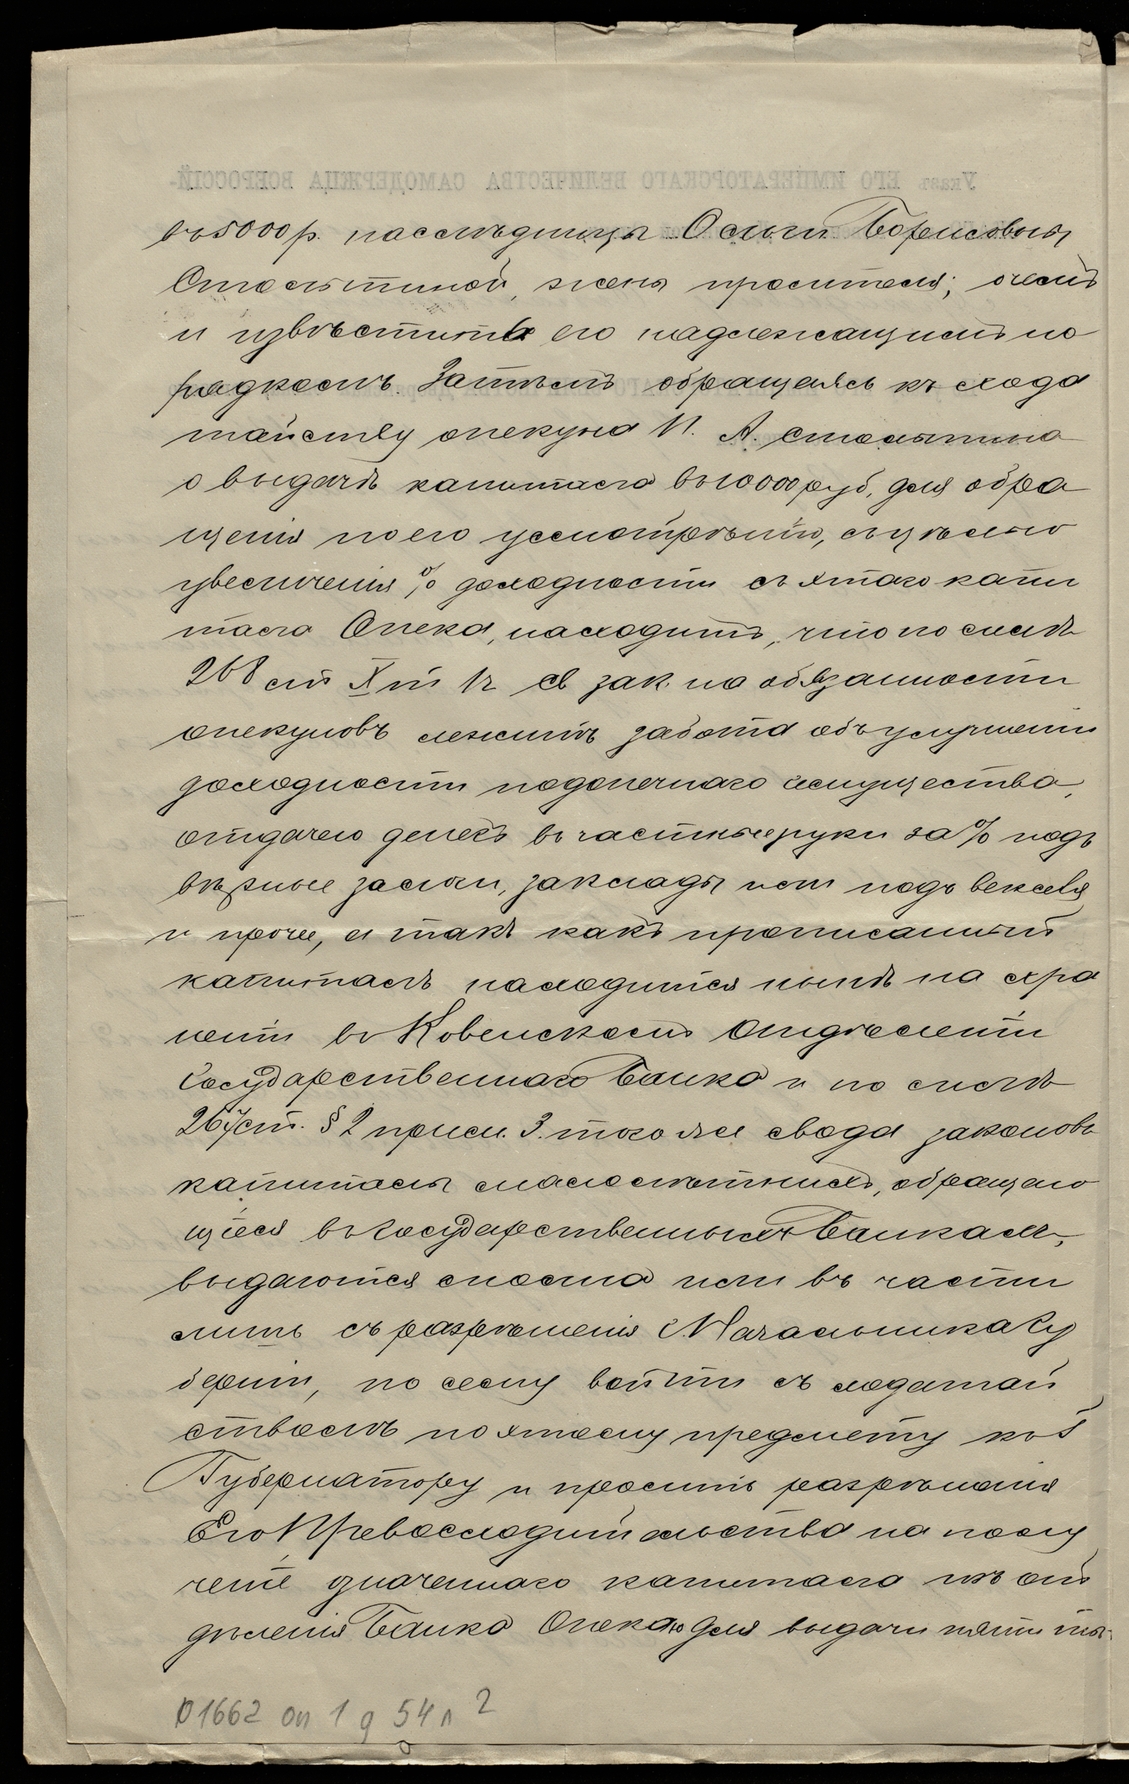 въ 5000 р. наслѣдницы Ольги Борисовны
Столыпиной, жены просителя; о чемъ
и извѣстить его надлежащимъ по
рядкомъ. Затѣмъ обращаясь къ схода
тайству опекуна П. А. Столыпина
о выдачѣ капитала въ 10000 руб. для обра
щенія по его усмотрѣнію, съ цѣлью
увеличенія % доходности съ этого капи
тала Опека, находитъ, что по силѣ
268 ст X т 1 ч св зак. на обязанности
опекуновъ лежитъ забота объ улучшеніи
доходности подопечнаго имущества,
отдачею денегъ въ частныя руки за % подъ
вѣрные залоги, заклады или подъ векселя
и проче, а такъ какъ прописанный
капиталъ находится нынѣ на хра
неніи въ Ковенскомъ Отдѣленіи
Государственнаго Банка и по силѣ
267 ст. § 2 прим. 3. того же свода законовъ
капиталы малолѣтнихъ, обращаю
щіеся въ Государственныхъ Банкахъ,
выдаются сполна или въ части
лишь съ разрѣшенія Начальника Гу
берніи, по сему войти съ ходатай
ствомъ по этому предмету къ Г
Губернатору и просить разрѣшенія
Его Превосходительства на полу
ченіе означеннаго капитала изъ от
дѣленія Банка Опекою для выдачи пяти ты-
Ф 1662 оп 1 д 54 л 2
Указъ ЕГО ИМПЕРАТОРСКАГО ВЕЛИЧЕСТВА САМОДЕРЖЦА ВСЕРОССІЙ-